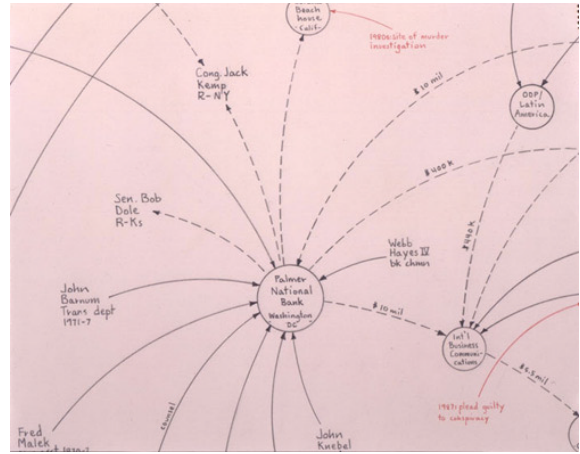 Beach
house
Calif.
1980s: site of murder
investigation
Cong. Jack
Kemp
R-NY
$10 mil
ODP/
Latin
America
$400K
Sen. Bob
Dole
R-Ks
$490K
Webb
Hayes IV
bk chmn
John
Barnum
Trans dept
1971-7
Palmer
National
Bank
Washington
DC
$10 mil
Int'l
Business
Communi-
cations
$6.5 mil
1987: plead guilty
to conspiracy
counsel
Fred
Malek
John
Knebel